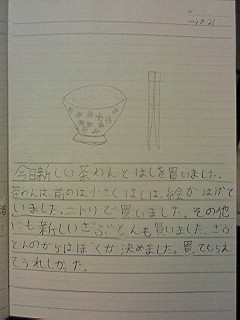 10.21
今日新しい茶わんとはしを買いました。
茶わんは、前のは小さく、はしは、絵がはげて
いました。ニトリで買いました。その他
にも新しいざぶとんも買いました。ざぶ
とんのからはぼくが決めました。買ってもらえ
てうれしかった。